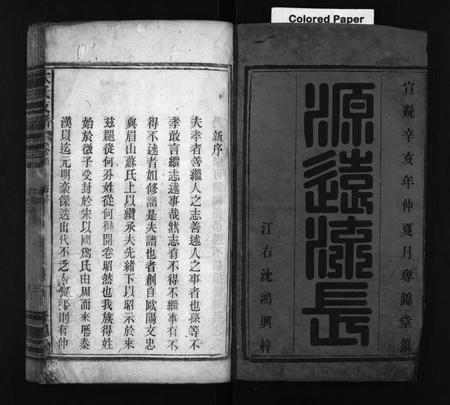 Colored Paper
宣統辛亥年仲夏月奪錦堂鐫
源遠流長
江右沈鴻興梓
新序
夫孝者善繼人之志善述人之事者也孫等不
孝敢言繼志述事哉然志有不得不繼事有不
得不述者如修譜是夫譜也者創自歐陽文忠
與眉山蘇氏上以纘承夫先緒下以昭示於來
茲關從何另姓從何得開卷昭然也我族得姓
始於微子受封於宋以國為氏由周而來歷秦
漢以迄元明豪傑迭出代不乏
則有仲